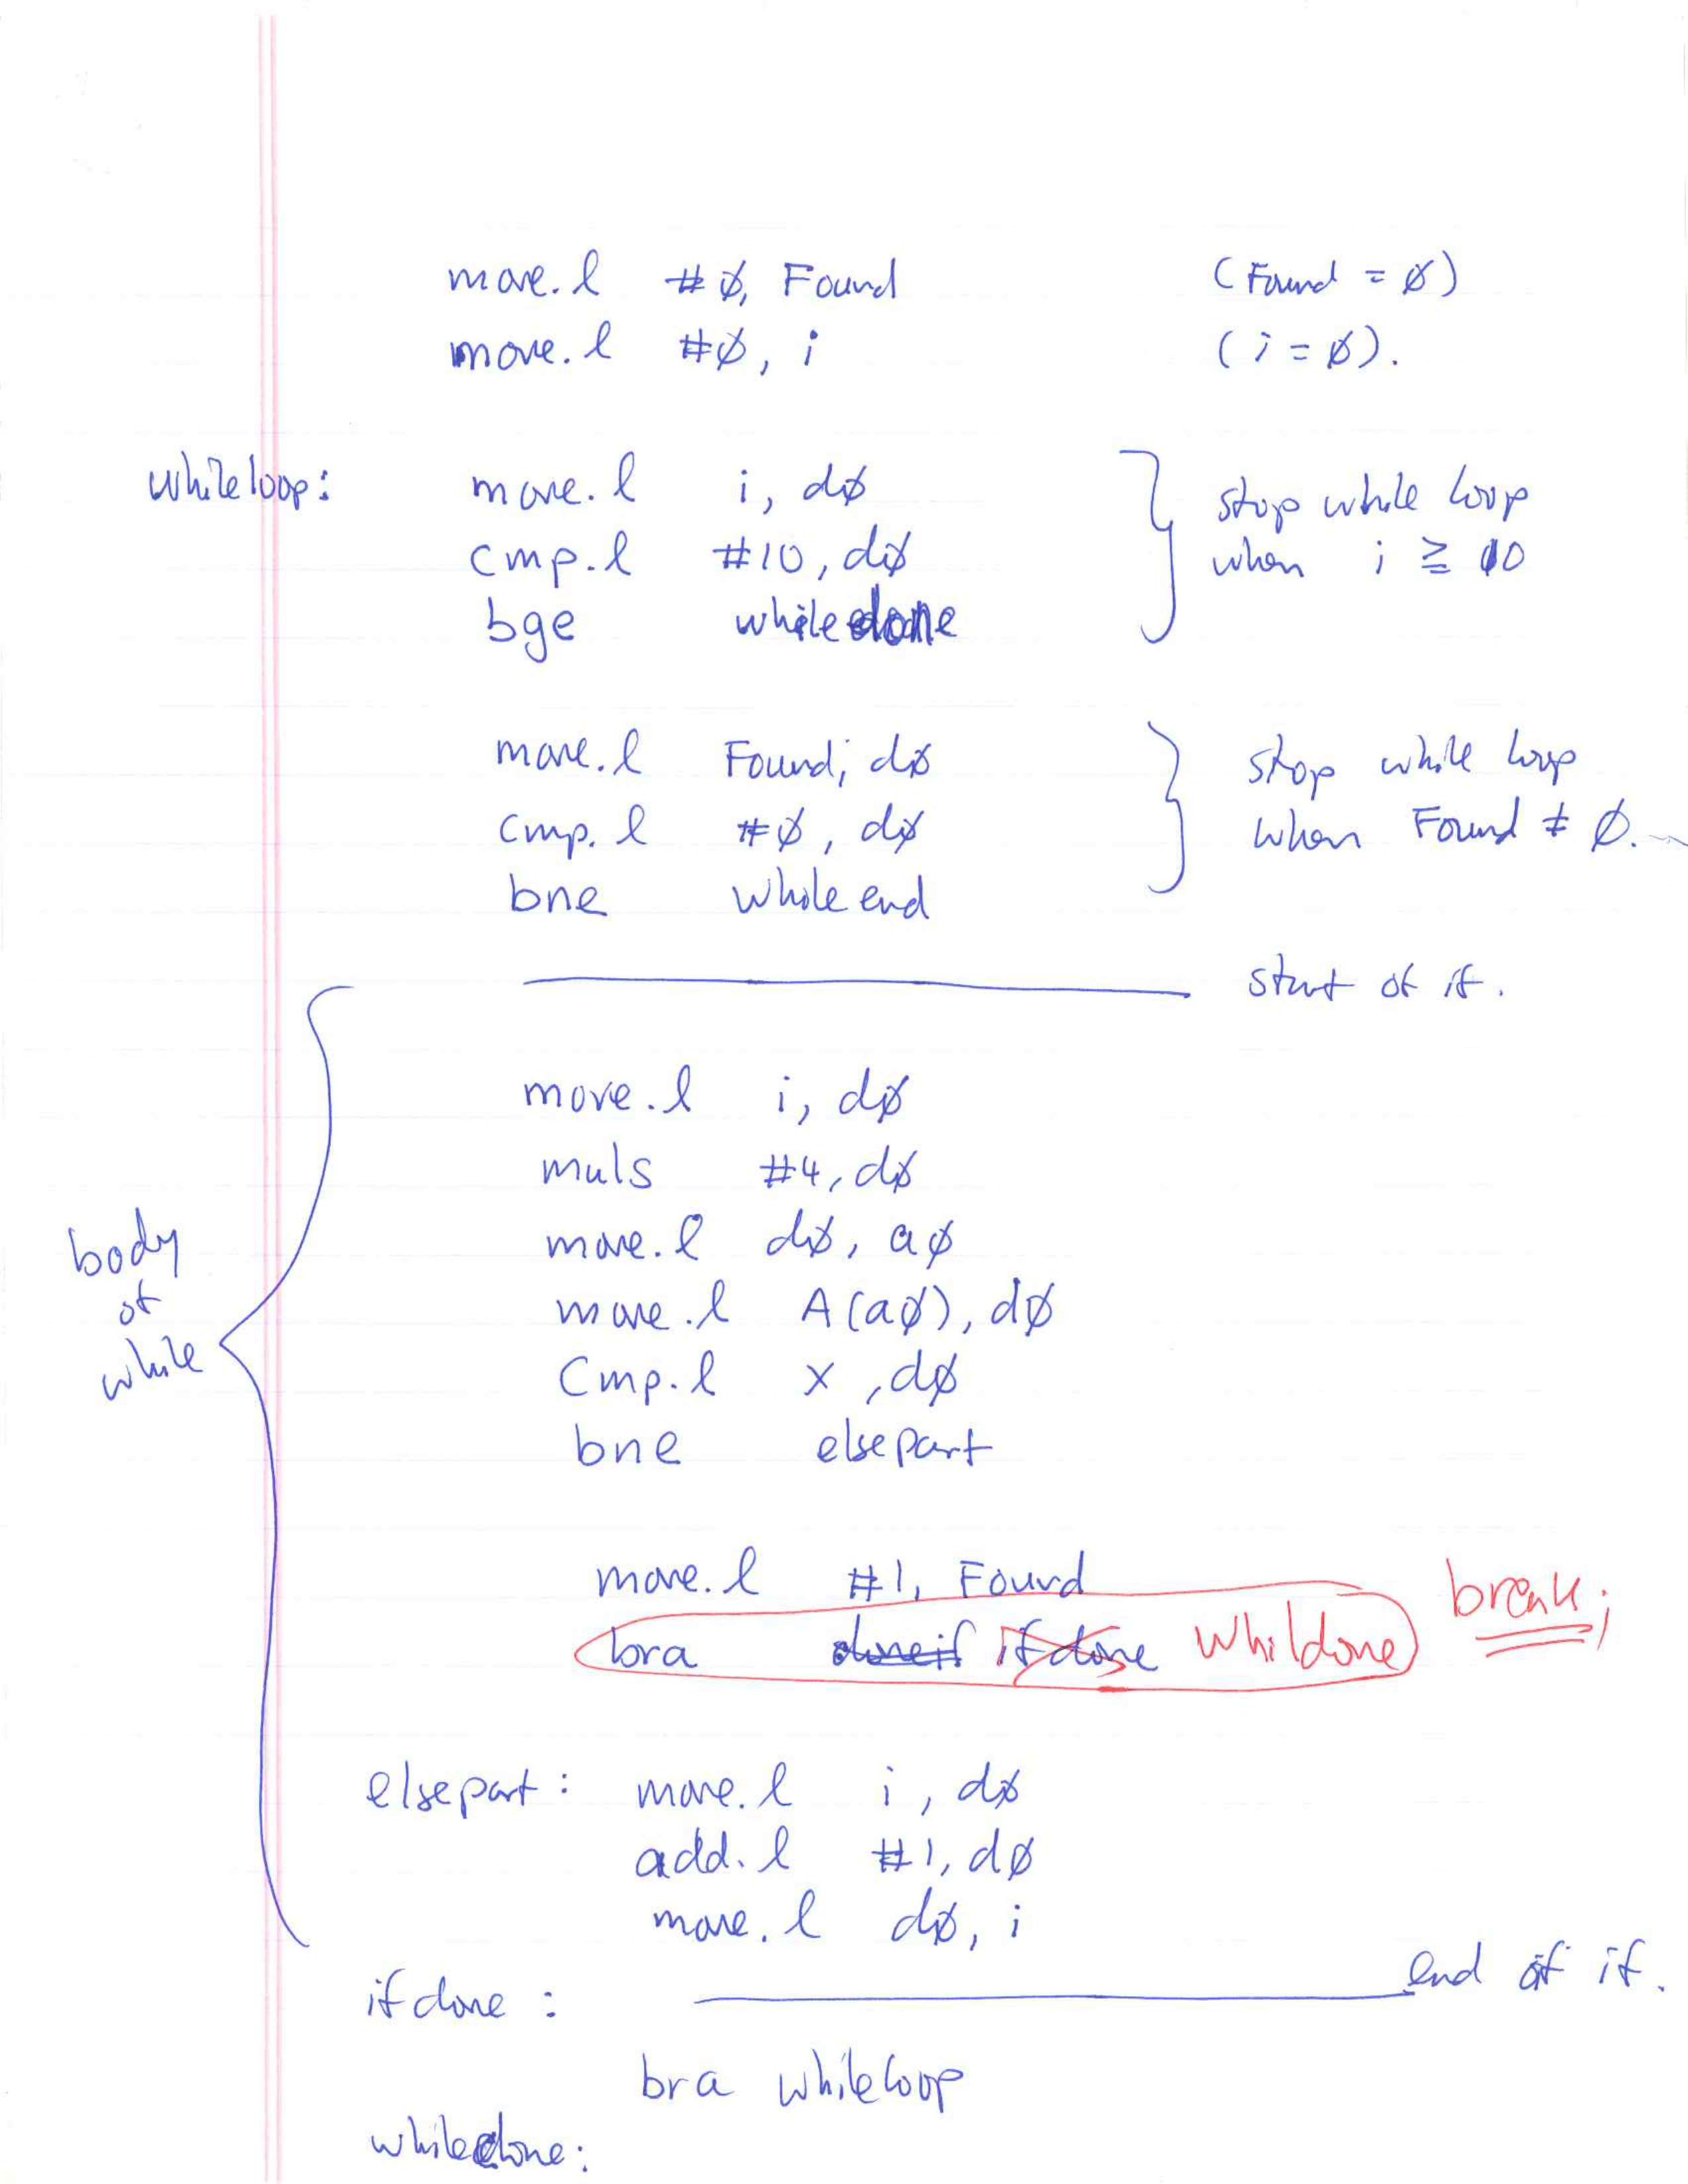 move.l #0, Found (Found = 0)
move.l #0, i (i = 0).
whileloop: move.l i, d0 stop while loop
cmp.l #10, d0 when i ≥ 10
bge whiledone
move.l Found, d0 stop while loop
cmp.l #0, d0 when Found ≠ 0.
bne while end
start of if.
move.l i, d0
muls #4, d0
move.l d0, a0
move.l A(a0), d0
cmp.l x, d0
bne elsepart
body
of
while
move.l #1, Found
bra doneif ifdone whildone break;
elsepart: move.l i, d0
add.l #1, d0
move.l d0, i
end of if.
ifdone:
bra whileloop
whiledone: